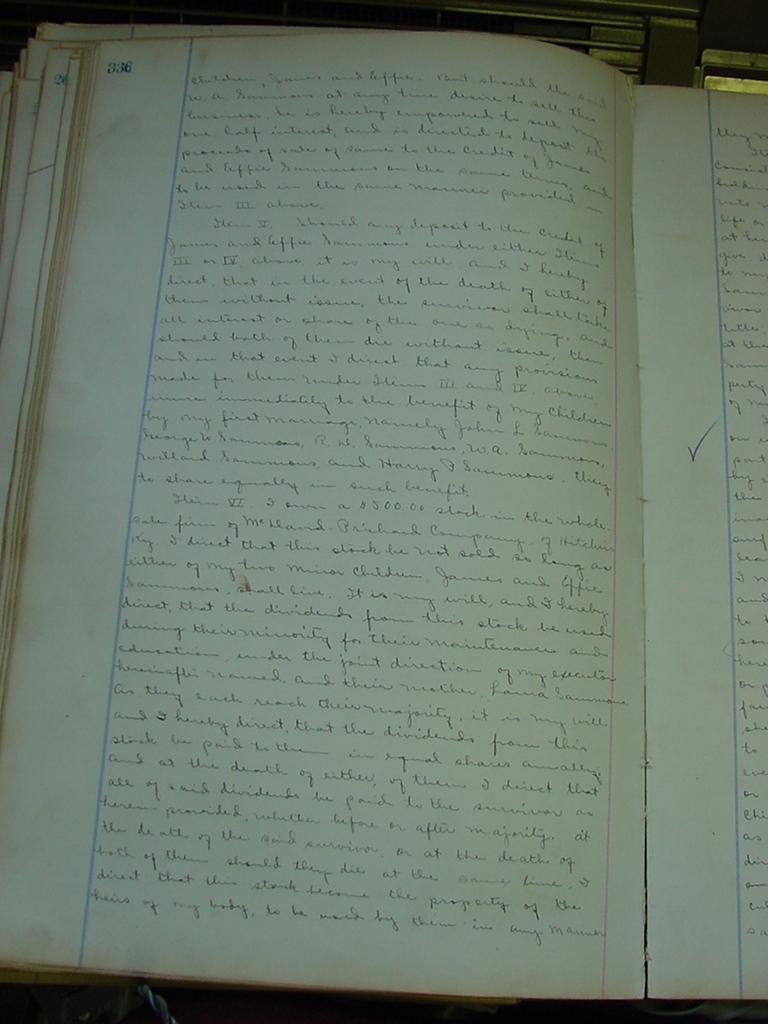 336
children, James and Effie. But should the said
W. A. Sammons at any time desire to sell this
business, he is hereby empowered to sell my
one half interest, and is directed to deposit the
proceeds of sale of same to the credit of James
and Effie Sammons on the same terms, and
to be used in the same manner provided in
Item III above.
Item V. Should any deposit to the credit of
James and Effie Sammons under either Items
III or IV above, it is my will and I hereby
direct, that in the event of the death of either of
them without issue, the survivor shall take
all interest or share of the one so dying, and
should both of them die without issue, then
and in that event I direct that any provisions
made for them under Items III and IV above,
inure immediately to the benefit of my children
by my first marriage, namely John L Sammons,
George W Sammons, R. H. Sammons, W. A. Sammons,
Willard Sammons, and Harry F Sammons, they
to share equally in such benefit.
Item VI. I own a $500.00 stock in the whole-
sale firm of McDavid-Prichard Company, of Hitchins
Ky. I direct that this stock be not sold so long as
either of my two minor children, James and Effie
Sammons, shall live. It is my will, and I hereby
direct, that the dividends from this stock be used
during their minority for their maintenance and
education, under the joint direction of my executor
hereinafter named, and their mother, Laura Sammons
As they each reach their majority, it is my will
and I hereby direct, that the dividends from this
stock be paid to them in equal shares annually,
and at the death of either of them I direct that
all of said dividends be paid to the survivor as
herein provided, whether before or after majority. At
the death of the said survivor, or at the death of
both of them should they die at the same time, I
direct that this stock become the property of the
heirs of my body, to be used by them in any manner